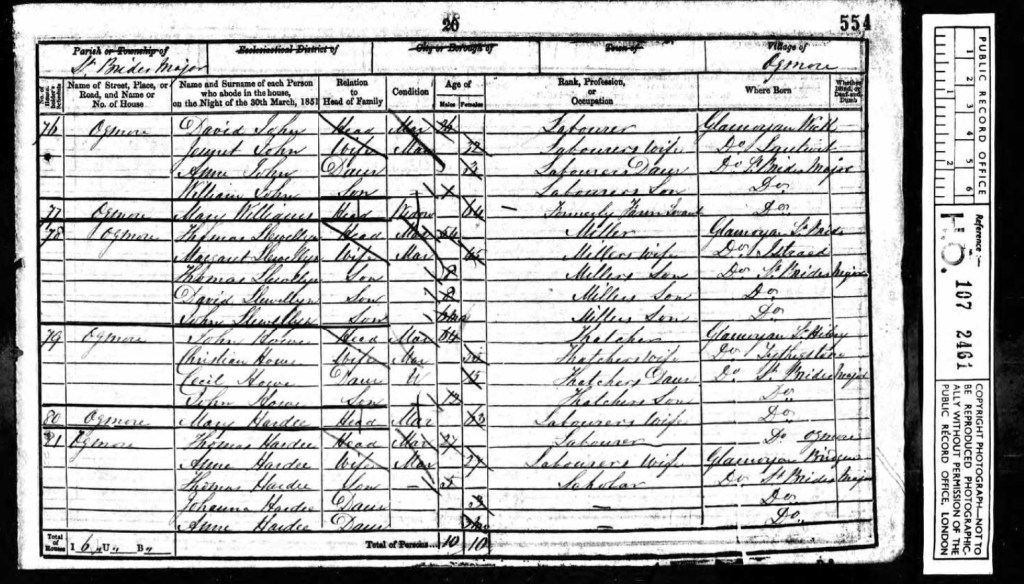 26
554
Parish or Township of
Ecclesiastical District of
City or Borough of
Town of
Village of
St Brides Major
Ogmore
Name of Street, Place, or Road, and Name or No. of House
Name and Surname of each Person who abode in the house, on the Night of the 30th March, 1851
Relation to Head of Family
Condition
Age of
Males
Females
Rank, Profession, or Occupation
Where Born
Whether Blind, or Deaf-and-Dumb
76 Ogmore David John Head Mar Labourer Glamorgan Wick
Jennet John Wife Mar 32 Labourers Wife Do
Anne John Daur Labourers Daur Do St Brides Major
William John Son Labourers Son Do
77 Ogmore Mary Williams Head Widow 64 Formerly Farm Servant Do
78 Ogmore Thomas Llewellyn Head Mar Miller Glamorgan St Brides
Margaret Llewellyn Wife Mar Millers Wife Do
Thomas Llewellyn Son Millers Son Do St Brides Major
David Llewellyn Son 8 Millers Son Do
John Llewellyn Son Millers Son Do
79 Ogmore John Howe Head Mar 54 Thatcher Glamorgan St Hilary
Christian Howe Wife Mar Thatchers wife Do
Cecil Howe Daur U 13 Thatchers Daur Do St Brides Major
John Howe Son 12 Thatchers Son Do
80 Ogmore Mary Hardee Head Mar 63 Labourers Wife Do
81 Ogmore Thomas Hardee Head Mar 27 Labourer Do Ogmore
Anne Hardee Wife Mar 27 Labourers Wife Glamorgan
Thomas Hardee Son 5 Scholar Do St Brides Major
Johanna Hardee Daur 3 — Do
Anne Hardee Daur — Do
Total of Houses I 6 U B
Total of Persons... 10 10
PUBLIC RECORD OFFICE
1 2 3 4 5 6
Reference :-
H.O. 107 2461
COPYRIGHT PHOTOGRAPH—NOT TO BE REPRODUCED PHOTOGRAPHICALLY WITHOUT PERMISSION OF THE PUBLIC RECORD OFFICE, LONDON